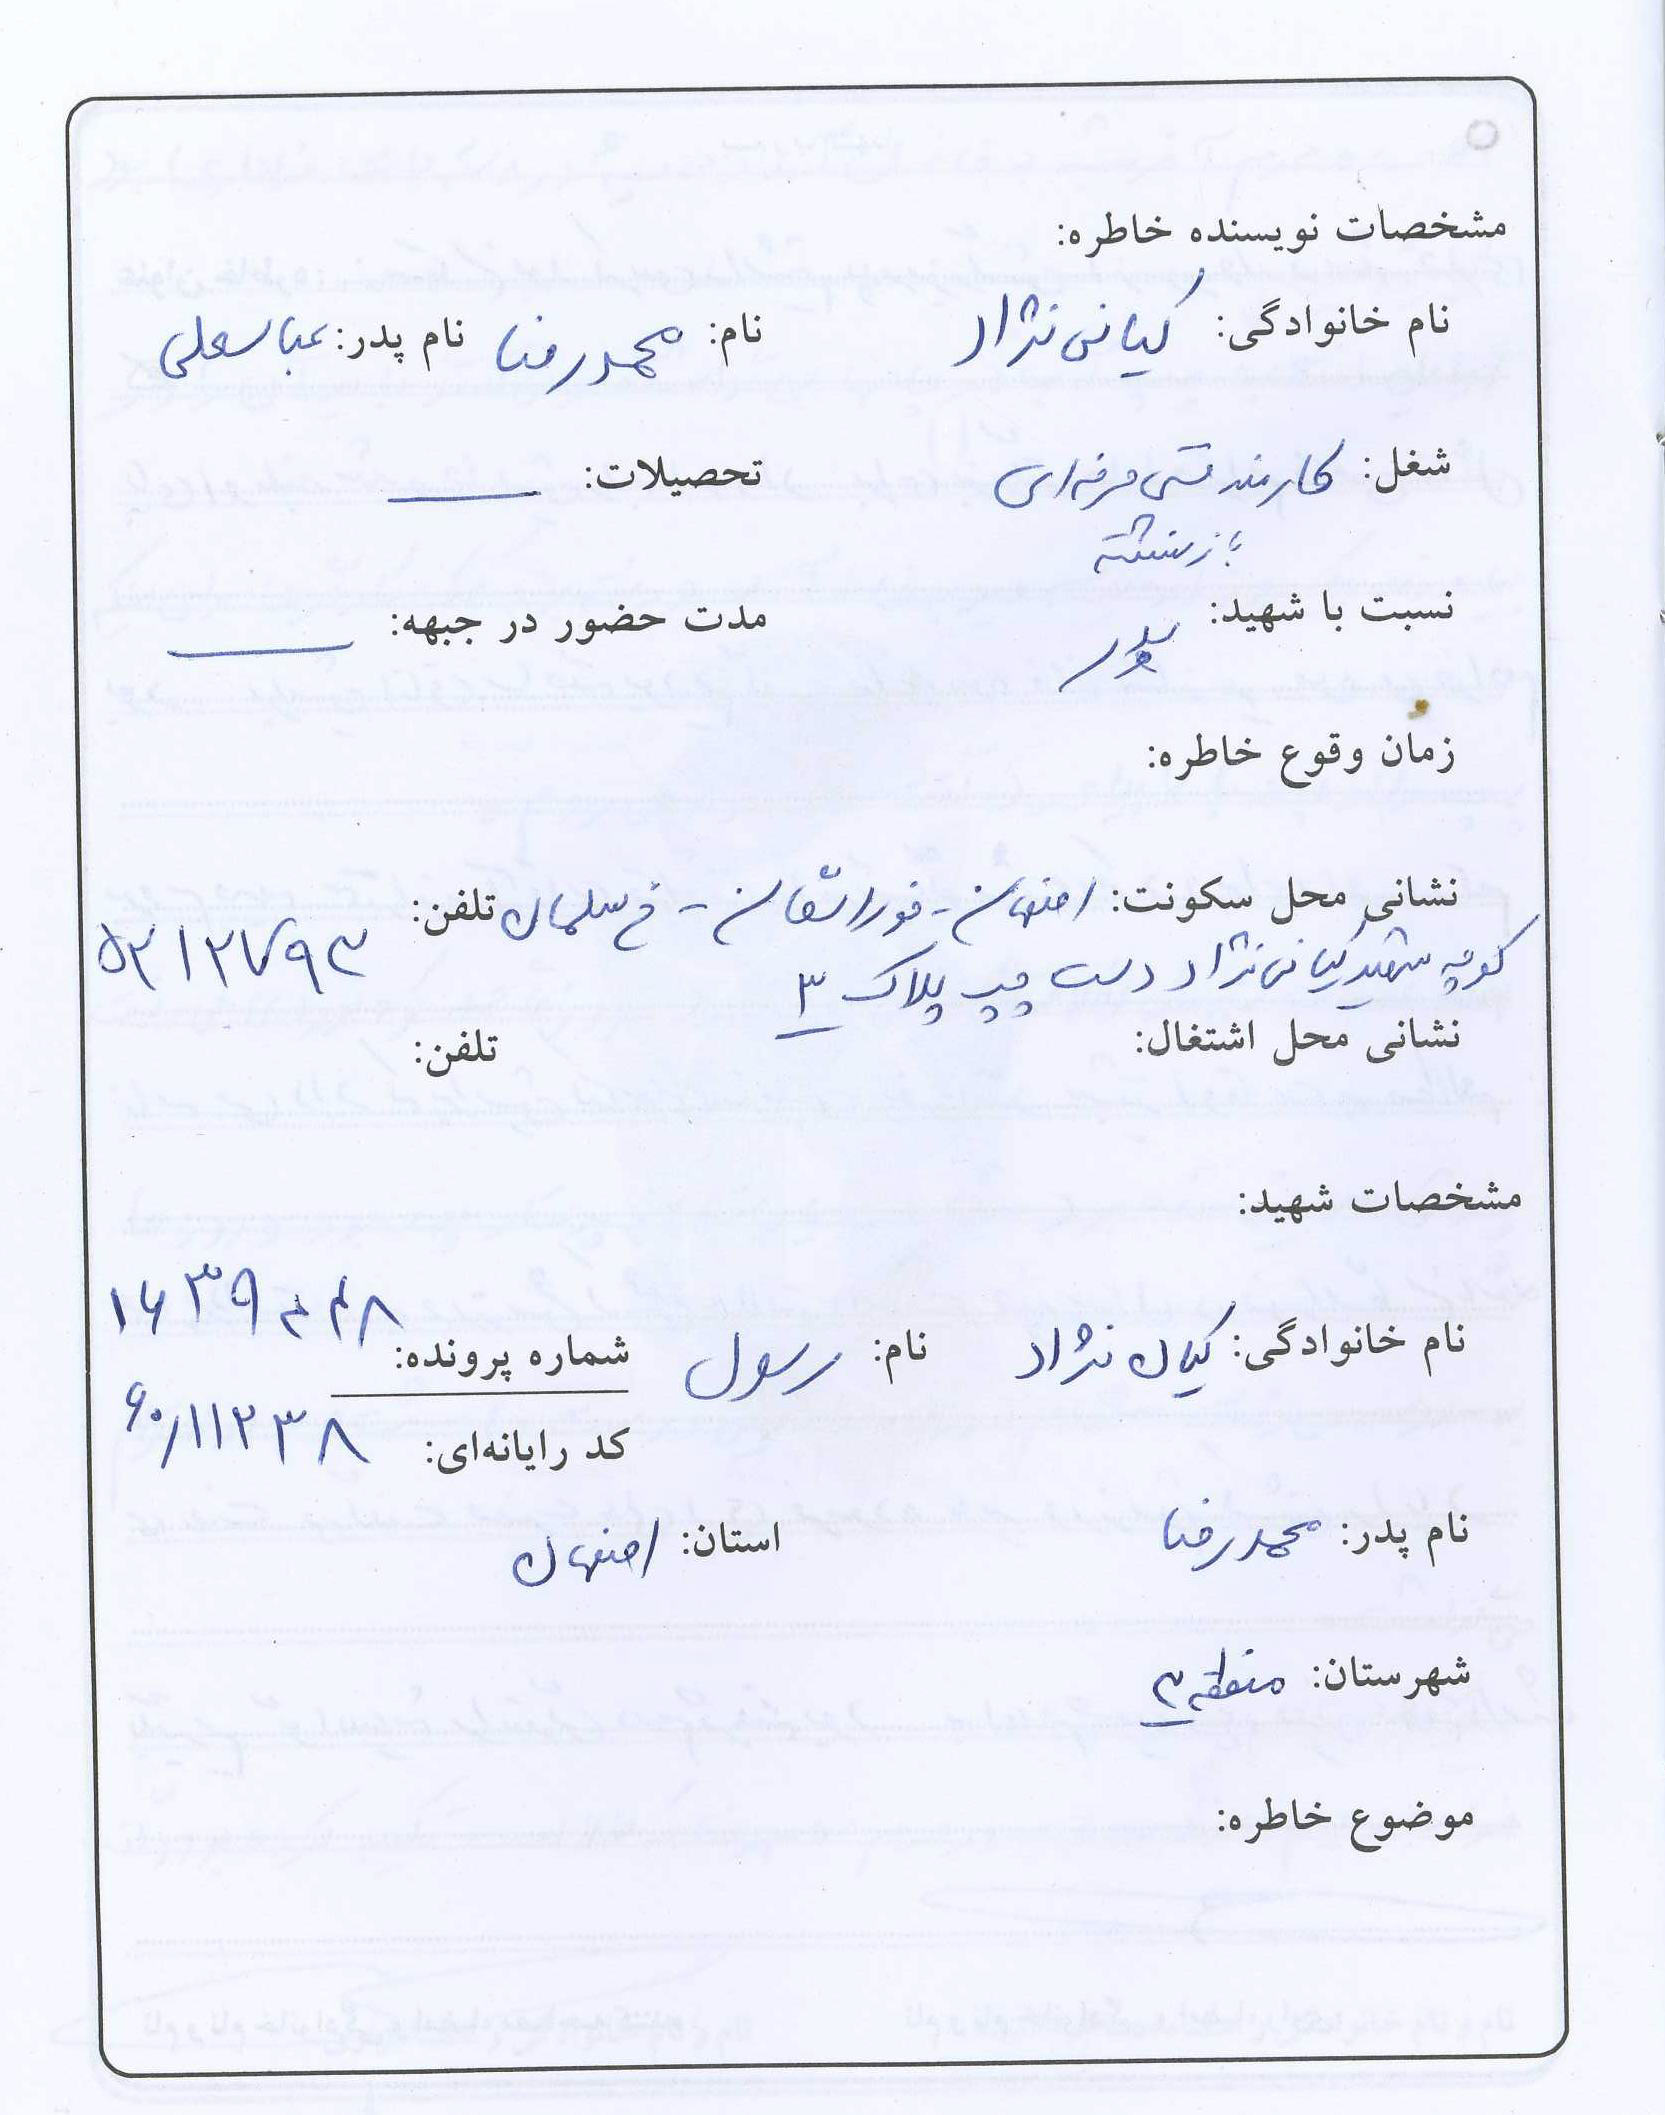 مشخصات نویسنده خاطره:
نام خانوادگی: کیانی نژاد نام: محمدرضا نام پدر: عباسعلی
شغل: کارمند فنی حرفه‌ای تحصیلات: ـــــ
بازنشسته
نسبت با شهید: پدر مدت حضور در جبهه: ـــــ
زمان وقوع خاطره:
نشانی محل سکونت: اصفهان - خوراسگان - خ سلمان تلفن:
کوچه شهید کیانی نژاد دست چپ پلاک ۳ ۵۲۱۲۷۹۳
نشانی محل اشتغال: تلفن:
مشخصات شهید:
نام خانوادگی: کیان نژاد نام: رسول شماره پرونده:
کد رایانه‌ای: ۶۰/۱۱۲۳۸
نام پدر: محمدرضا استان: اصفهان
شهرستان: منطقه ۳
موضوع خاطره: